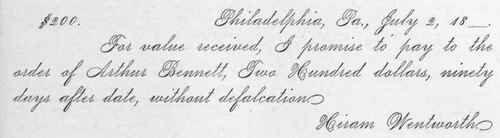 $200. Philadelphia, Pa., July 2, 18__.
For value received, I promise to pay to the
order of Arthur Bennett, Two Hundred dollars, ninety
days after date, without defalcation
Hiram Wentworth